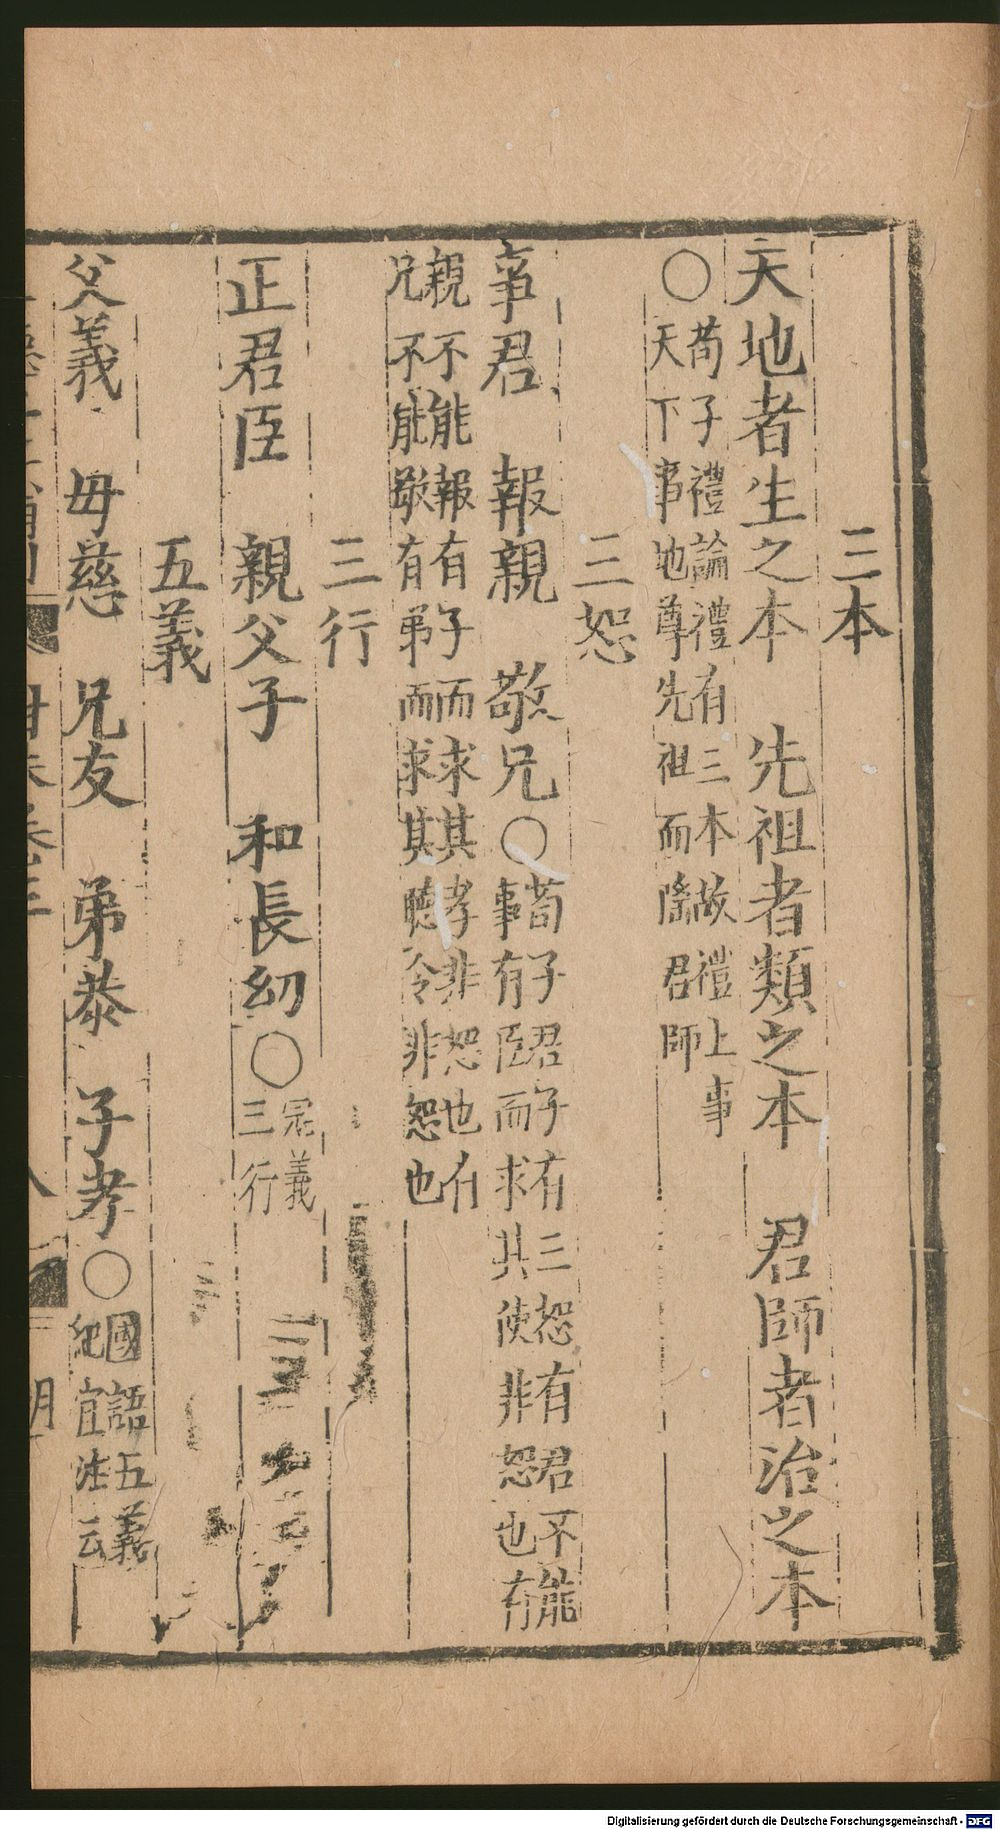 三本
天地者生之本　先祖者類之本　君師者治之本
〇荀子禮論禮有三本故禮上事
天下事地尊先祖而隆君師
三恕
事君　報親　敬兄〇荀子君子有三恕有君不能
事有臣而求其使非恕也有
親不能報有子而求其孝非恕也有
兄不能敬有弟而求其聽令非恕也
三行
正君臣　親父子　和長幼〇冠義
三行
五義
父義　母慈　兄友　弟恭　子孝〇國語五義
紀宜注云
Digitalisierung gefördert durch die Deutsche Forschungsgemeinschaft - DFG